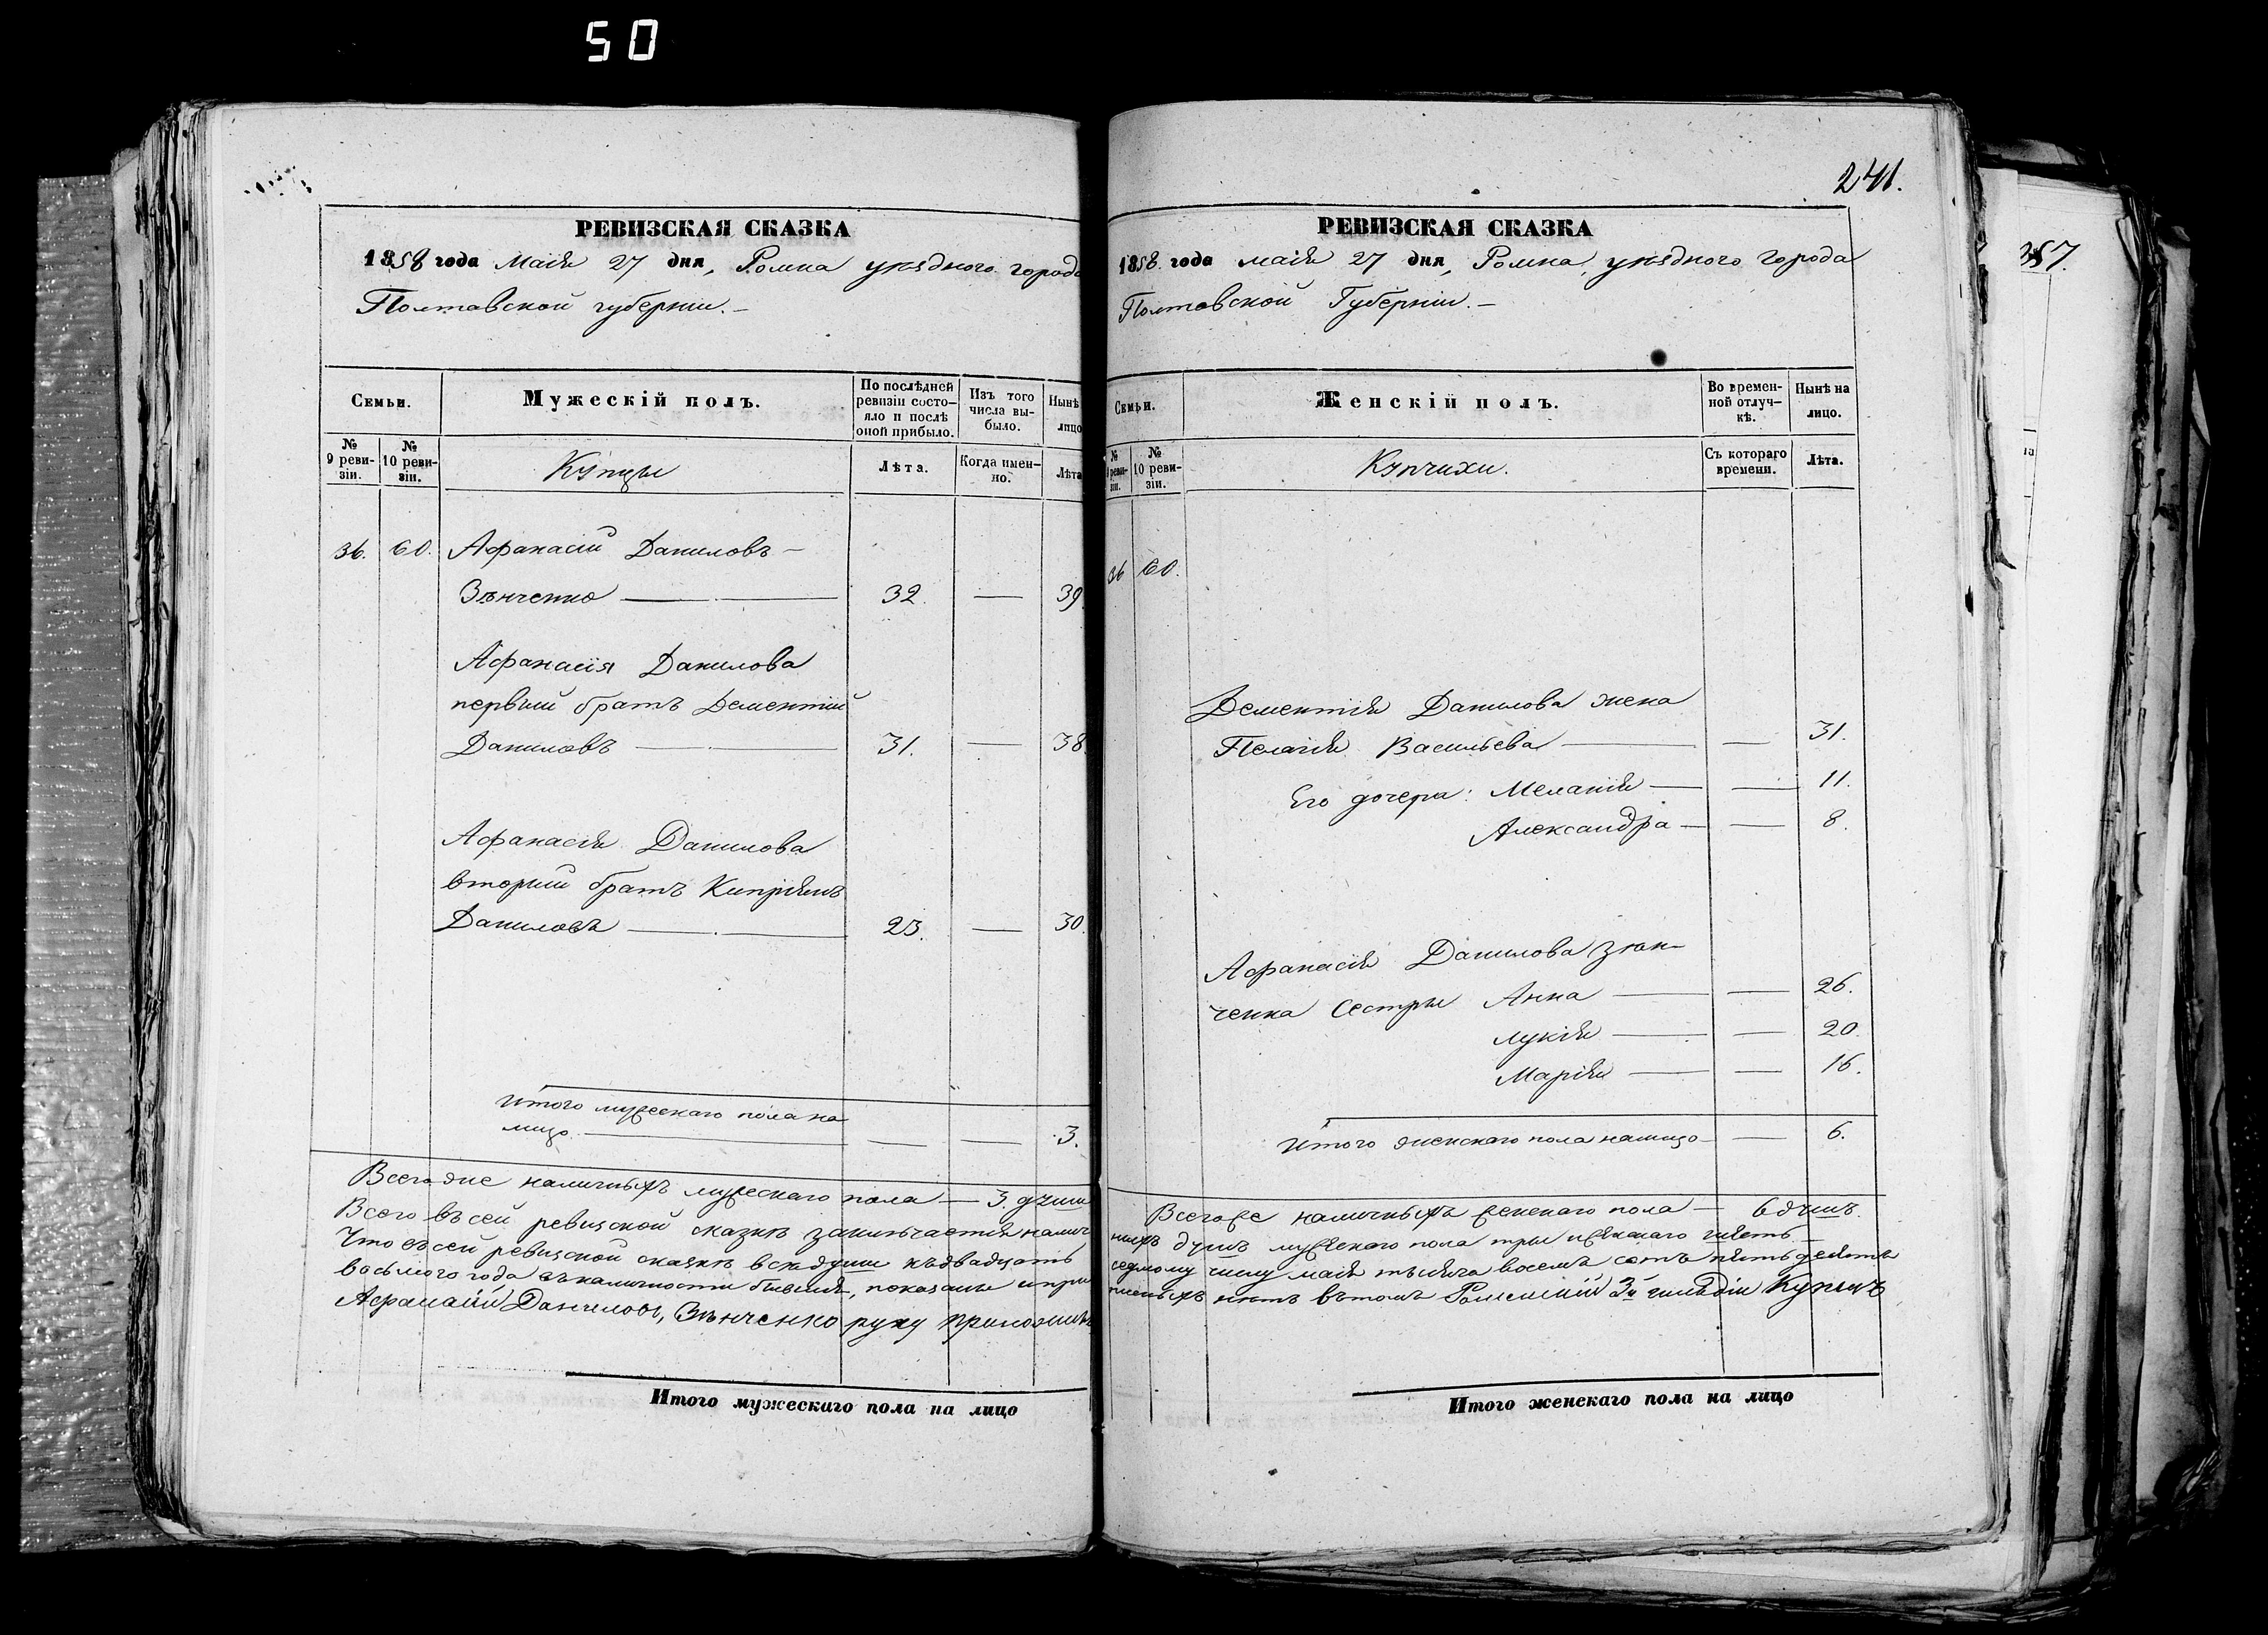 50
РЕВИЗСКАЯ СКАЗКА
1858 года Маія 27 дня, Ромна уѣзднаго города
Полтавской губерніи.—
Семьи.
Мужескій полъ.
По послѣдней ревизіи состояло и послѣ оной прибыло.
Изъ того числа выбыло.
Нынѣ лицо
№ 9 ревизіи.
№ 10 ревизіи.
Купцы
Лѣта.
Когда именно.
Лѣта
36. 60. Афанасій Даниловъ —
Зѣнченко — 32. — 39.
Афанасія Данилова
первый братъ Дементій
Даниловъ — 31. — 38.
Афанасія Данилова
вторый братъ Кипріянъ
Даниловъ — 23. — 30.
Итого мужескаго пола на
лицо — — — 3.
Всего же наличныхъ мужескаго пола — 3. души
Всего въ сей ревизской сказкѣ заключается налич
Что въ сей ревизской сказкѣ всѣ души къ двадцать
восьмаго года въ наличности бывшія, показаны и при
Афанасій Даниловъ, Зѣнченко руку приложилъ
Итого мужескаго пола на лицо
241.
РЕВИЗСКАЯ СКАЗКА
1858. года маія 27 дня, Ромна, уѣзднаго города
Полтавской Губерніи.—
Семьи.
Женскій полъ.
Во временной отлучкѣ.
Нынѣ на лицо.
№ 9 ревизіи.
№ 10 ревизіи.
Купчихи.
Съ котораго времени.
Лѣта.
36 60.
Дементія Данилова жена
Пелагія Васильева — — 31.
Его дочера: Меланія — — 11.
Александра — — 8.
Афанасія Данилова Зѣн-
ченка Сестры Анна — — 26.
Лукія — — 20.
Марія — — 16.
Итого женскаго пола налицо — — 6.
Всего же наличныхъ женскаго пола — 6 душъ.
ныхъ душъ мужескаго пола три и женскаго шесть —
седмому числу маія тысяча восемъ сотъ пятьдесятъ
нѣтъ вътомъ Роменскій 3й гильдіи Купецъ
Итого женскаго пола на лицо
357.